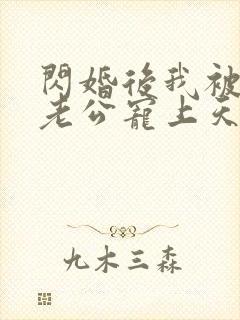 閃婚後我被
老公寵上天
九木三森